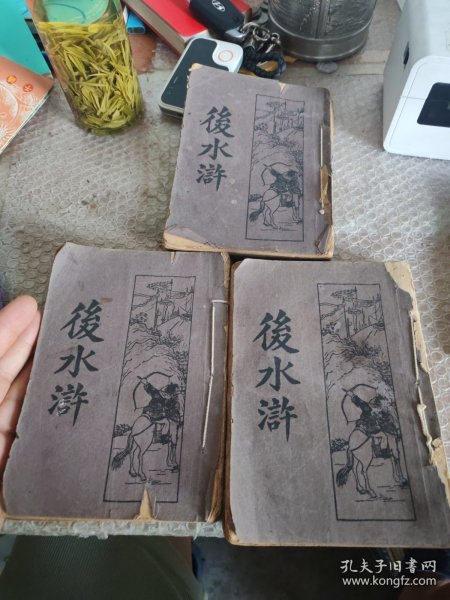 後水滸
後水滸
後水滸
孔夫子旧书网
www.kongfz.com